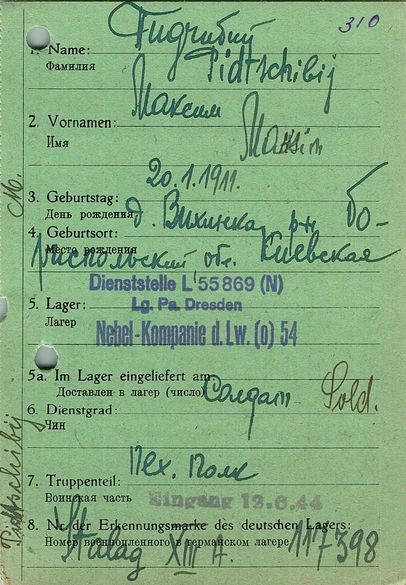 310
Пидчибий
1. Name: Pidtschibij
Фамилия
Максим
2. Vornamen: Maksim
Имя
20.1.1911.
3. Geburtstag:
День рождения д. Вихинка, р-н Бо-
4. Geburtsort:
Место рождения
риспольский, обл. Киевская
Dienststelle L 55869 (N)
Lg. Pa. Dresden
5. Lager:
Лагер
Nebel-Kompanie d. Lw. (o) 54
5a. Im Lager eingeliefert am
Доставлен в лагер (число)
Солдат Sold.
6. Dienstgrad:
Чин
Пех. полк
7. Truppenteil:
Воинская часть
Eingang 12.6.44
8. Nr. der Erkennungsmarke des deutschen Lagers:
Номер военнопленного в германском лагере
Stalag XIII A. 117398
Pidtschibij